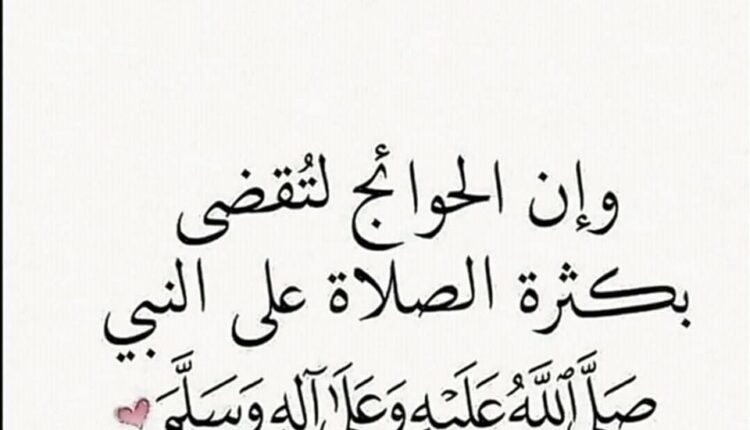 وإن الحوائج لتُقضى
بكثرة الصلاة على النبي
صَلَّى ٱللَّهُ عَلَيْهِ وَعَلَىٰ آلِهِ وَسَلَّمَ